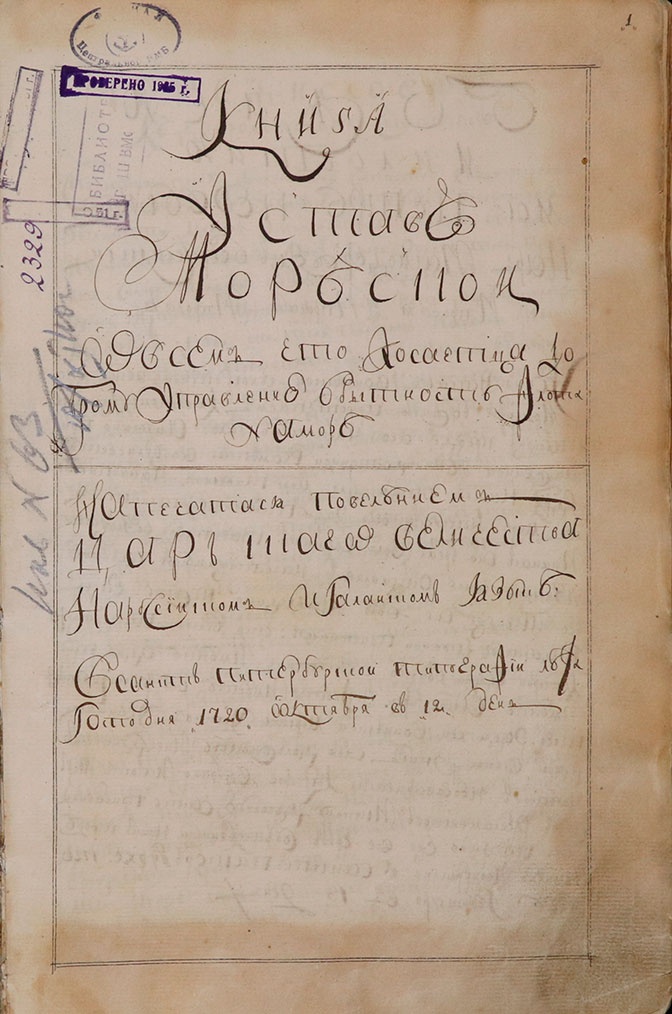 1
Центральной ВМБ
ПРОВЕРЕНО 1945 г.
БИБЛИОТЕ
2329
Книга
Уставъ
Морьской
Овсемъ что Косаетца до
Управлению вбытность Флота
Наморѣ
Напечатася повелѣниемъ
Царьскаго величества
Наросиском Игаланском Языкѣ:
Всанктъ питербурской типографіи лѣта
Господня 1720 Октября въ 13 день